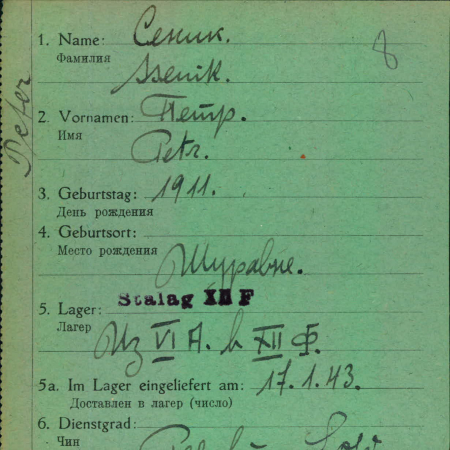 8
Peter
1. Name: Сеник.
Фамилия
Ssenik.
2. Vornamen: Петр.
Имя
Petr.
3. Geburtstag: 1911.
День рождения
4. Geburtsort:
Место рождения Шуравне.
5. Lager: Stalag XII F
Лагер Из VI A. в XII Ф.
5a. Im Lager eingeliefert am: 17.1.43.
Доставлен в лагер (число)
6. Dienstgrad:
Чин